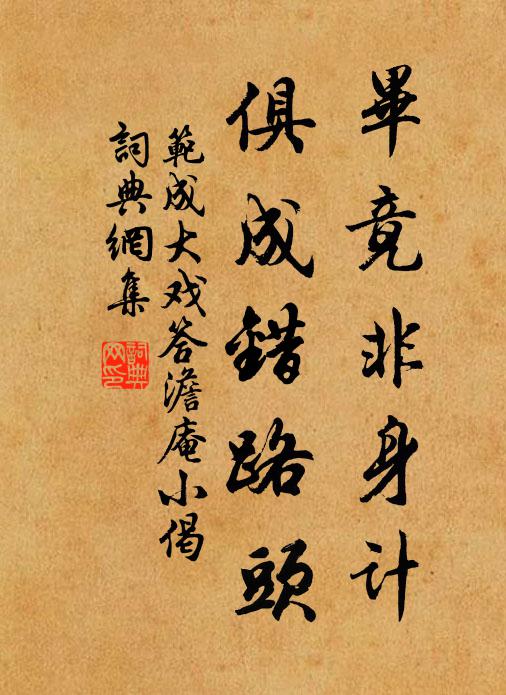 畢竟非身计
俱成錯路頭
範成大戏答澹庵小偈
詞典網集
詞典
网印